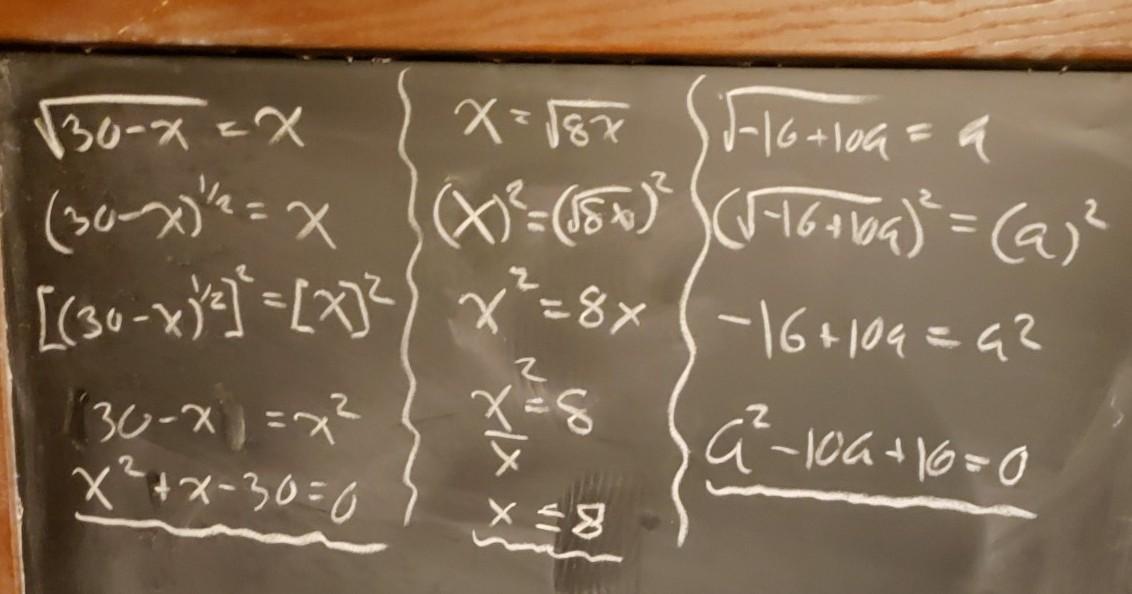 √30-x = x
(30-x)^1/2 = x
[(30-x)^1/2]^2 = [x]^2
30-x = x^2
x^2+x-30=0
x=√8x
(x)^2=(√8x)^2
x^2=8x
x^2/x=8
x=8
√-16+10a = a
(√-16+10a)^2 = (a)^2
-16+10a = a^2
a^2-10a+16=0